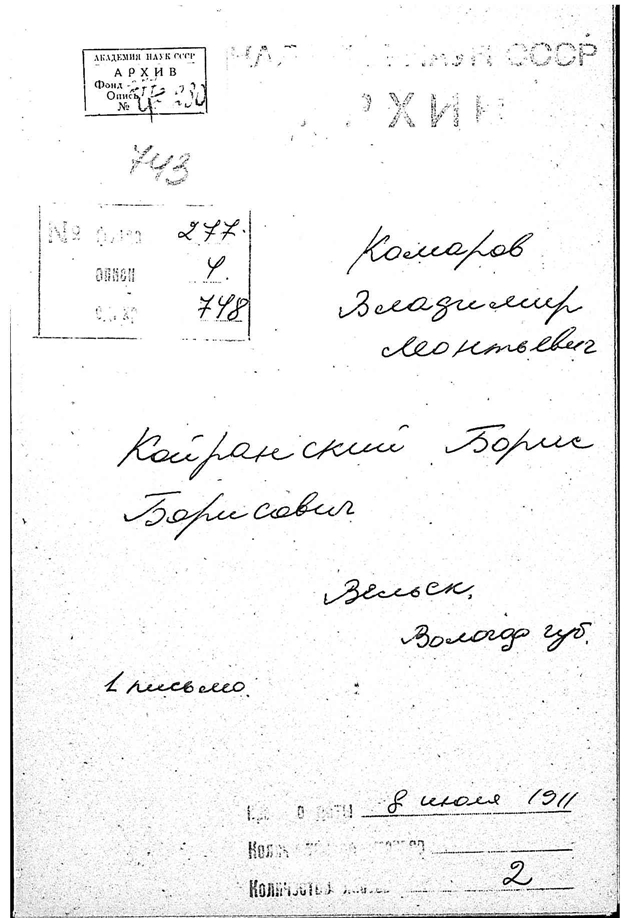 АКАДЕМИЯ НАУК СССР
АРХИВ
Фонд
Опись
№ 230
СССР
743
№ 277.
опись 4.
748
Комаров
Владимир
Леонтьевич
Койранский Борис
Борисович
Вельск,
Вологод губ.
1 письмо.
8 июля 1911
Количество 2